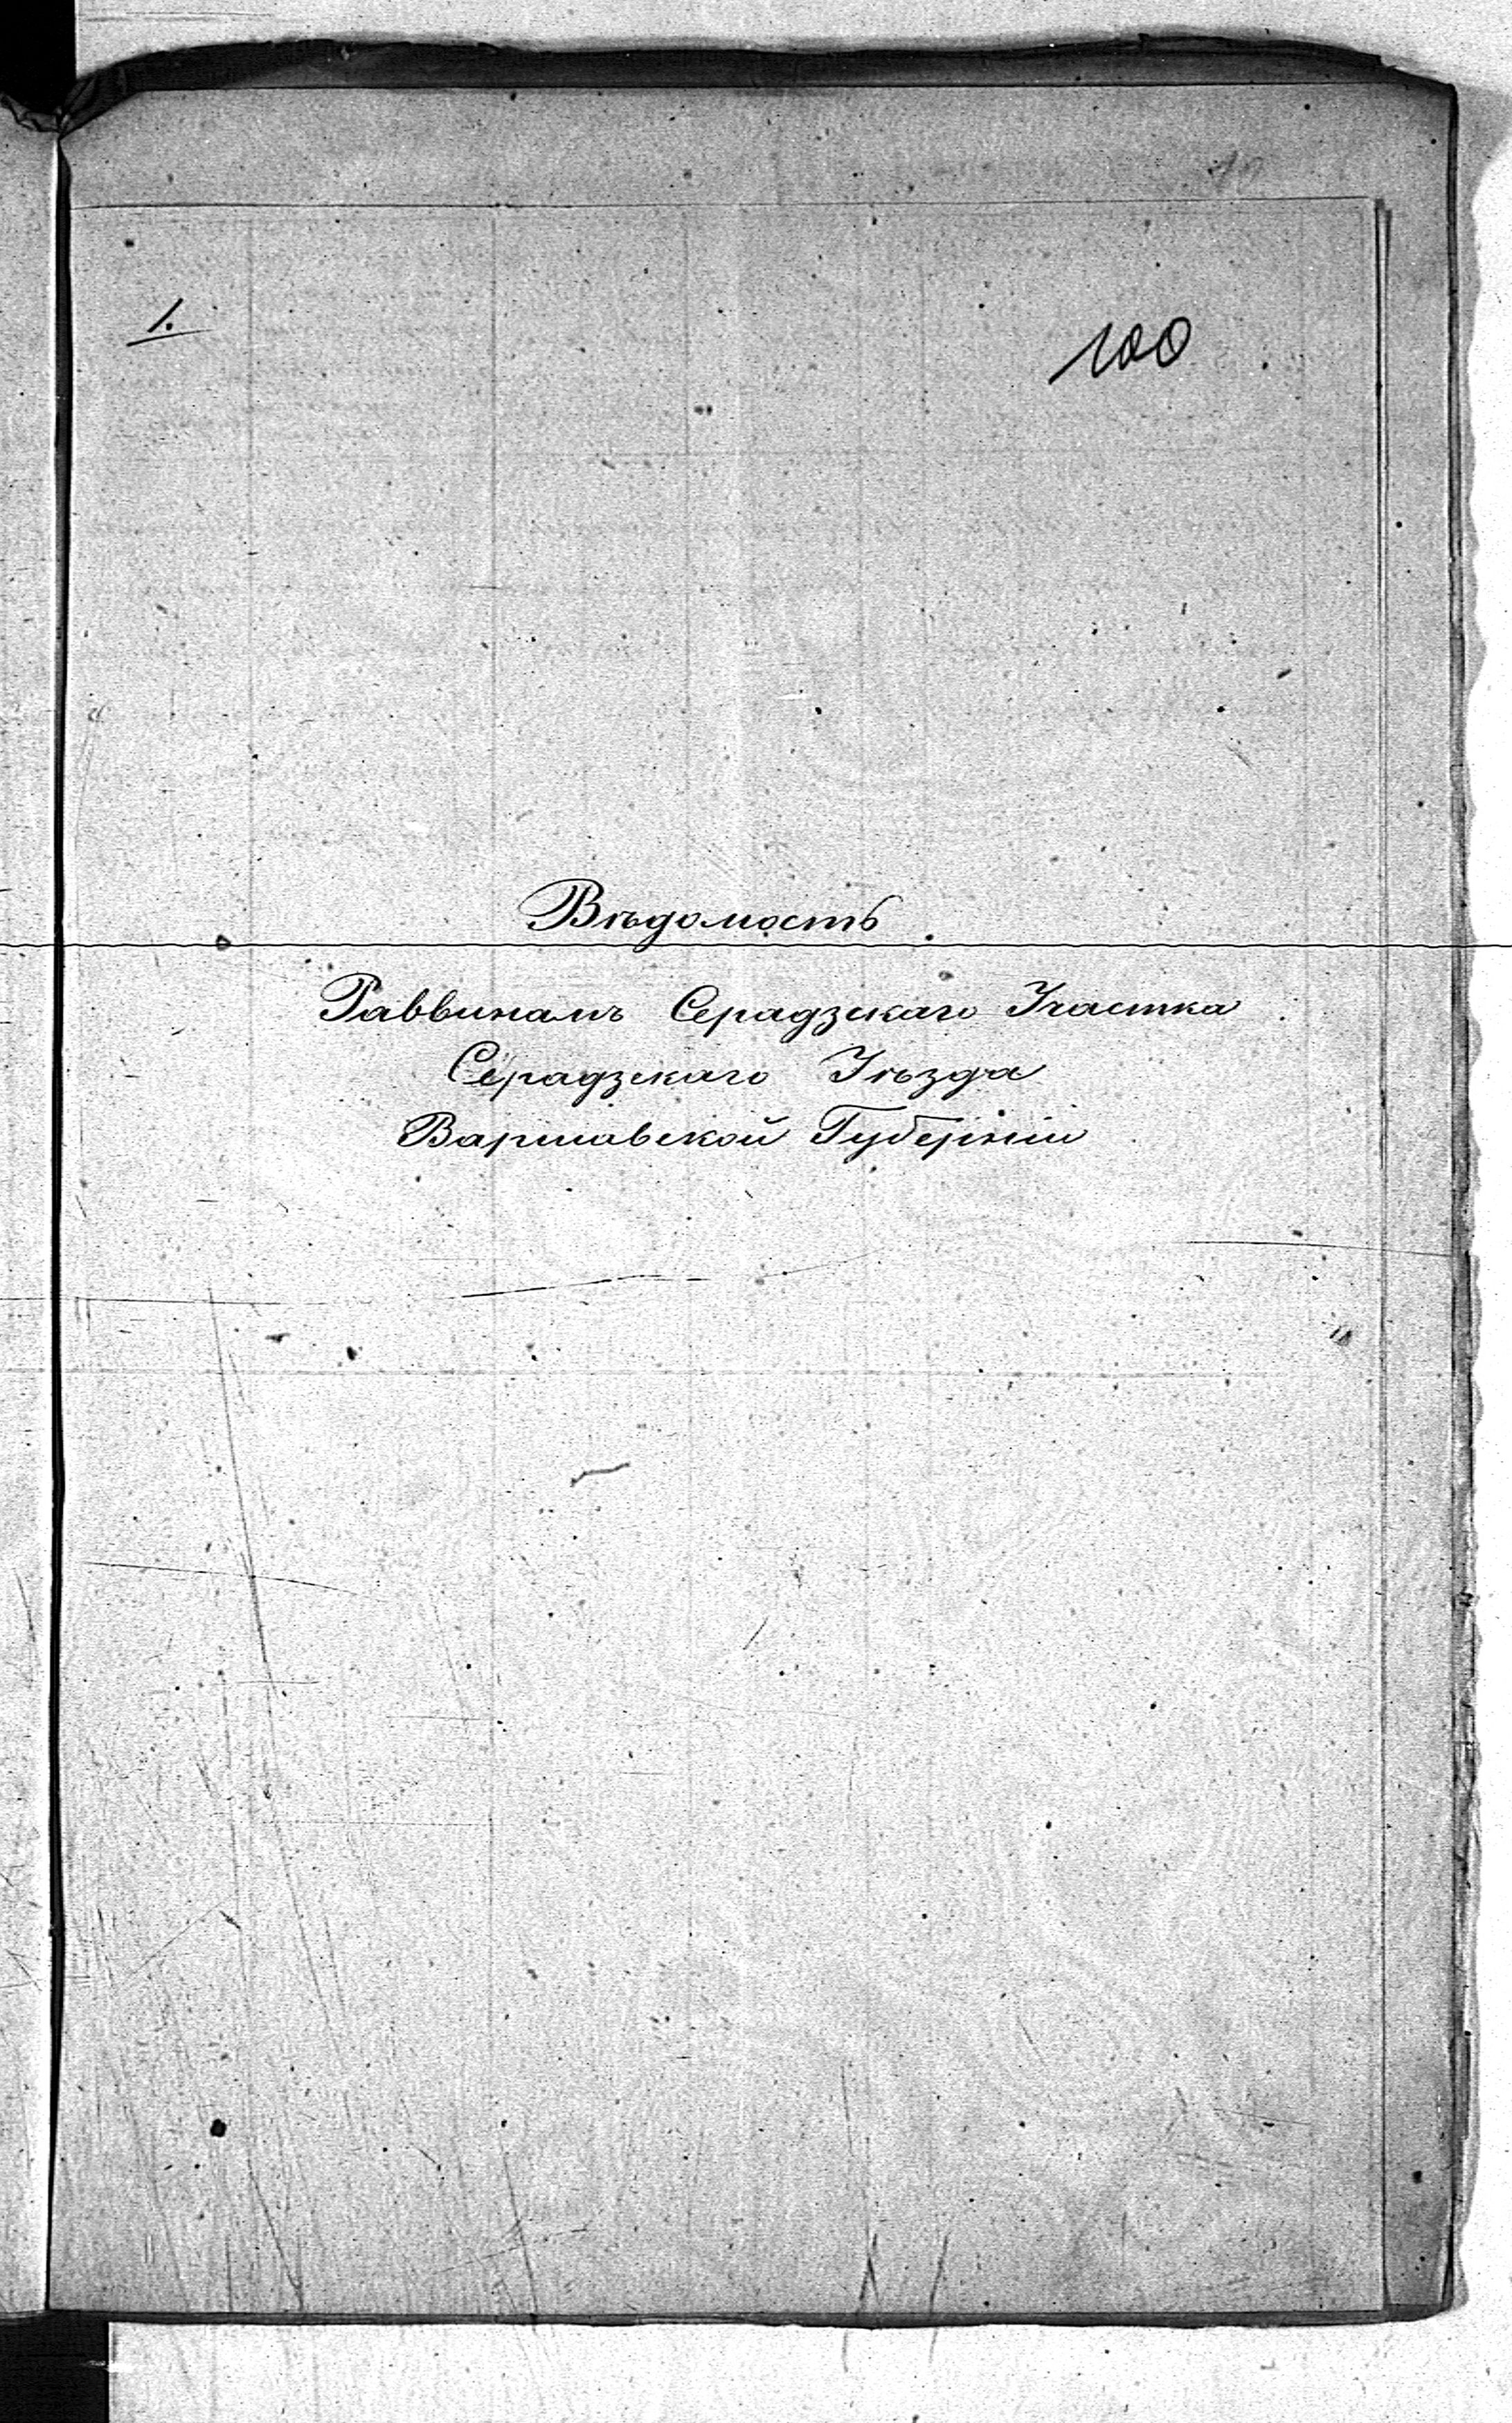 1.
100
Вѣдомость
Раввинамъ Серадзскаго Участка
Серадзскаго Уѣзда
Варшавской Губерніи